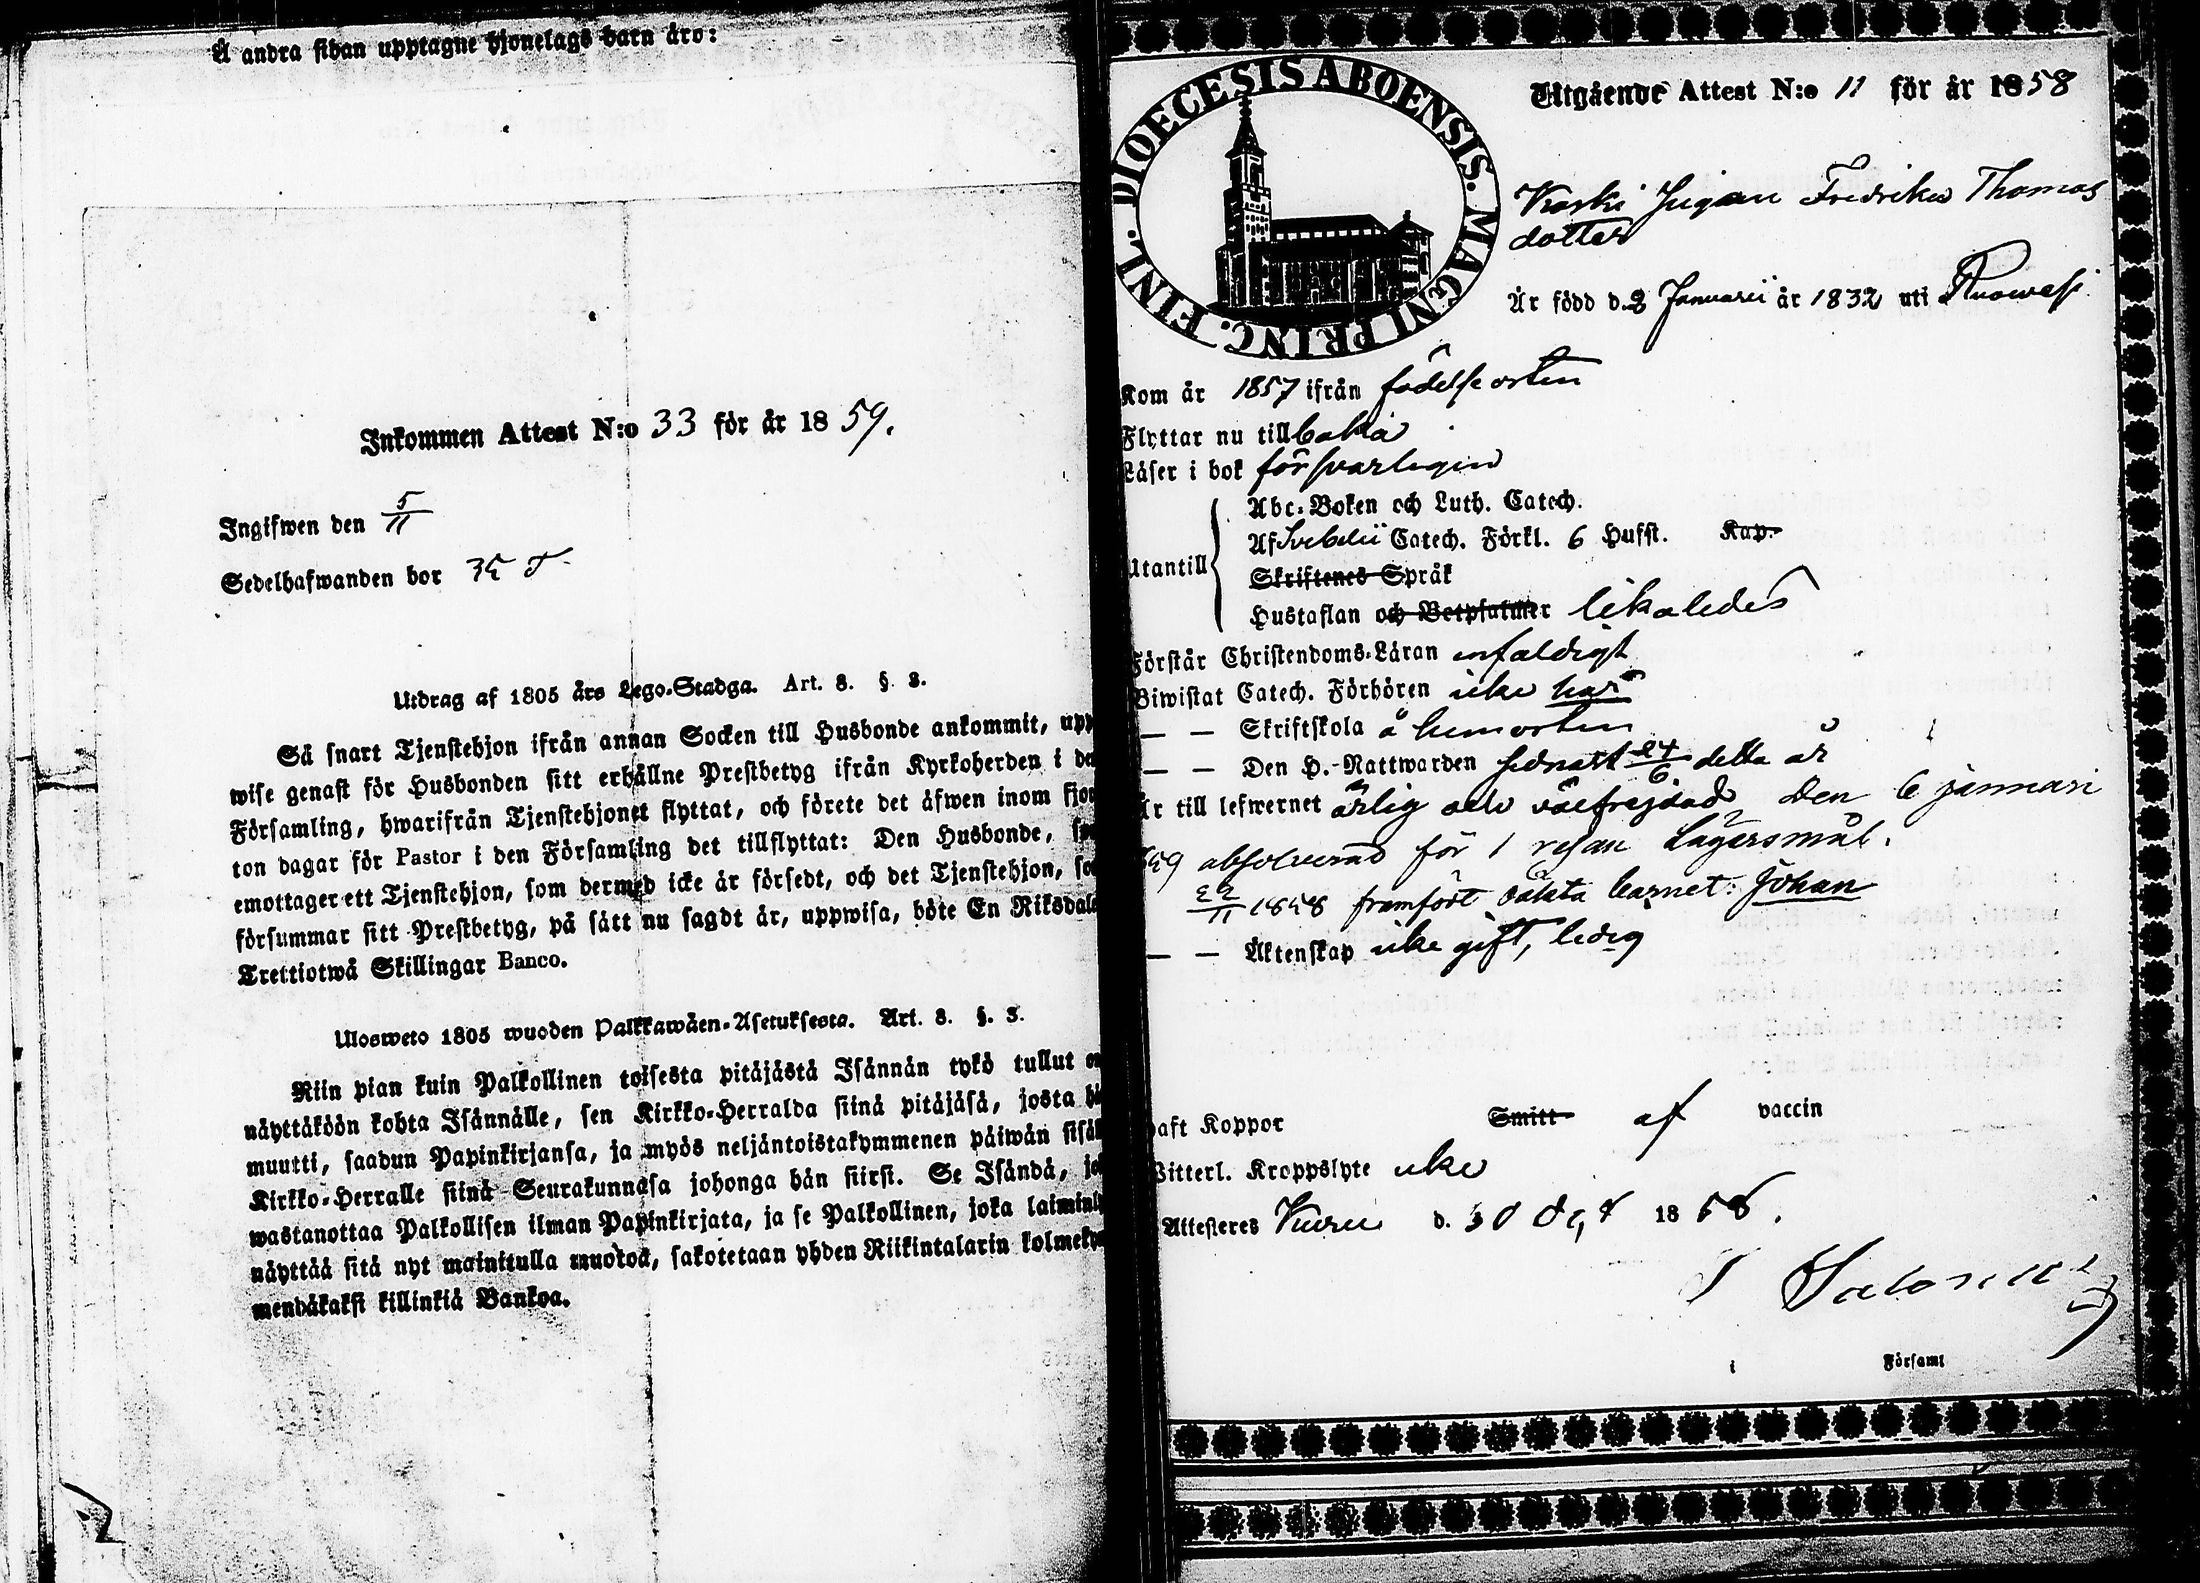 Å andra sidan upptagne hjonelags barn äro:
Inkommen Attest N:o 33 för år 1859.
Ingifwen den 5/11
Sedelhafwanden bor
Utdrag af 1805 års Lego-Stadga. Art. 8. §. 3.
Så snart Tjenstehjon ifrån annan Socken till Husbonde ankommit, upp
wise genast för Husbonden sitt erhållne Prestbetyg ifrån Kyrkoherden i de
Församling, hwarifrån Tjenstehjonet flyttat, och förete det äfwen inom fjor
ton dagar för Pastor i den Församling det tillflyttat: Den Husbonde,
emottager ett Tjenstehjon, som dermed icke är försedt, och det Tjenstehjon, so
försummar sitt Prestbetyg, på sätt nu sagdt är, uppwisa, böte En Riksdale
Trettiotwå Skillingar Banco.
Ulosweto 1805 wuoden Palkkawäen-Asetuksesta. Art. 8. §. 3.
Niin pian kuin Palkollinen toisesta pitäjästä Isännän tykö tullut on
näyttäköön kohta Isännälle, sen Kirkko-Herralda siinä pitäjäsä, josta hä
muutti, saadun Papinkirjansa, ja myös neljäntoistakymmenen päiwän sisäl
Kirkko-Herralle siinä Seurakunnasa johonga hän siirsi. Se Isändä, jo
wastanottaa Palkollisen ilman Papinkirjata, ja se Palkollinen, joka laiminly
näyttää sitä nyt mainitulla muotoa, sakotetaan yhden Riikintalarin kolmeky
mendäkaksi killinkiä Bankoa.
DIOECESIS ABOENSIS. MAGNI PRINC. FINL.
Utgående Attest N:o 11 för år 1858
Koski Jugan Fredrika Thomas
dotter
Är född d. 2 Januarii år 1832 uti Ruowesi.
Kom år 1857 ifrån födelseorten
Flyttar nu tillbaka
Läser i bok försvarligen
Utantill
Abc-Boken och Luth. Catech.
Af Svebelii Catech. Förkl. 6 Hufst. Kap.
Skriftenes Språk
Hustaflan och Betpsalmer likaledes
Förstår Christendoms-Läran enfaldigt
Biwistat Catech. Förhören icke här
— — Skriftskola å hemorten
— — Den H. Nattwarden sednast 24/6 detta år
Är till lefwernet ärlig och välfrejdad Den 6 januari
59 absolverad för 1 resan Lägersmål.
22/11 1858 framfört oäkta barnet: Johan
— — Äktenskap icke gift, ledig
Haft Koppor Smitt af vaccin
Witterl. Kroppslyte icke
Attesteres Kuru d. 30 1858.
i Församl